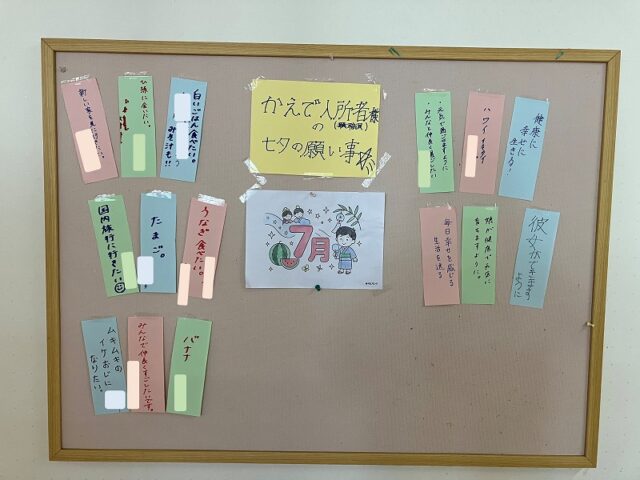 かえで入所者様
(職員混)
の
七夕の願い事
7月
白いごはん食べたい。
みそ汁も!!
ひ孫に会いたい。
うなぎ食べたい。
たまご。
国内旅行に行きたい
バナナ
みんなで仲良くすごしたいです。
ムキムキの
イケおじに
なりたい。
健康に
幸せに
生きる!
ハワイ
・元気で過ごせますように
・みんなと仲良く暮らしたい
彼女ができます
ように
娘が健康で元気に
なりますように。
毎日幸せを感じる
生活を送る